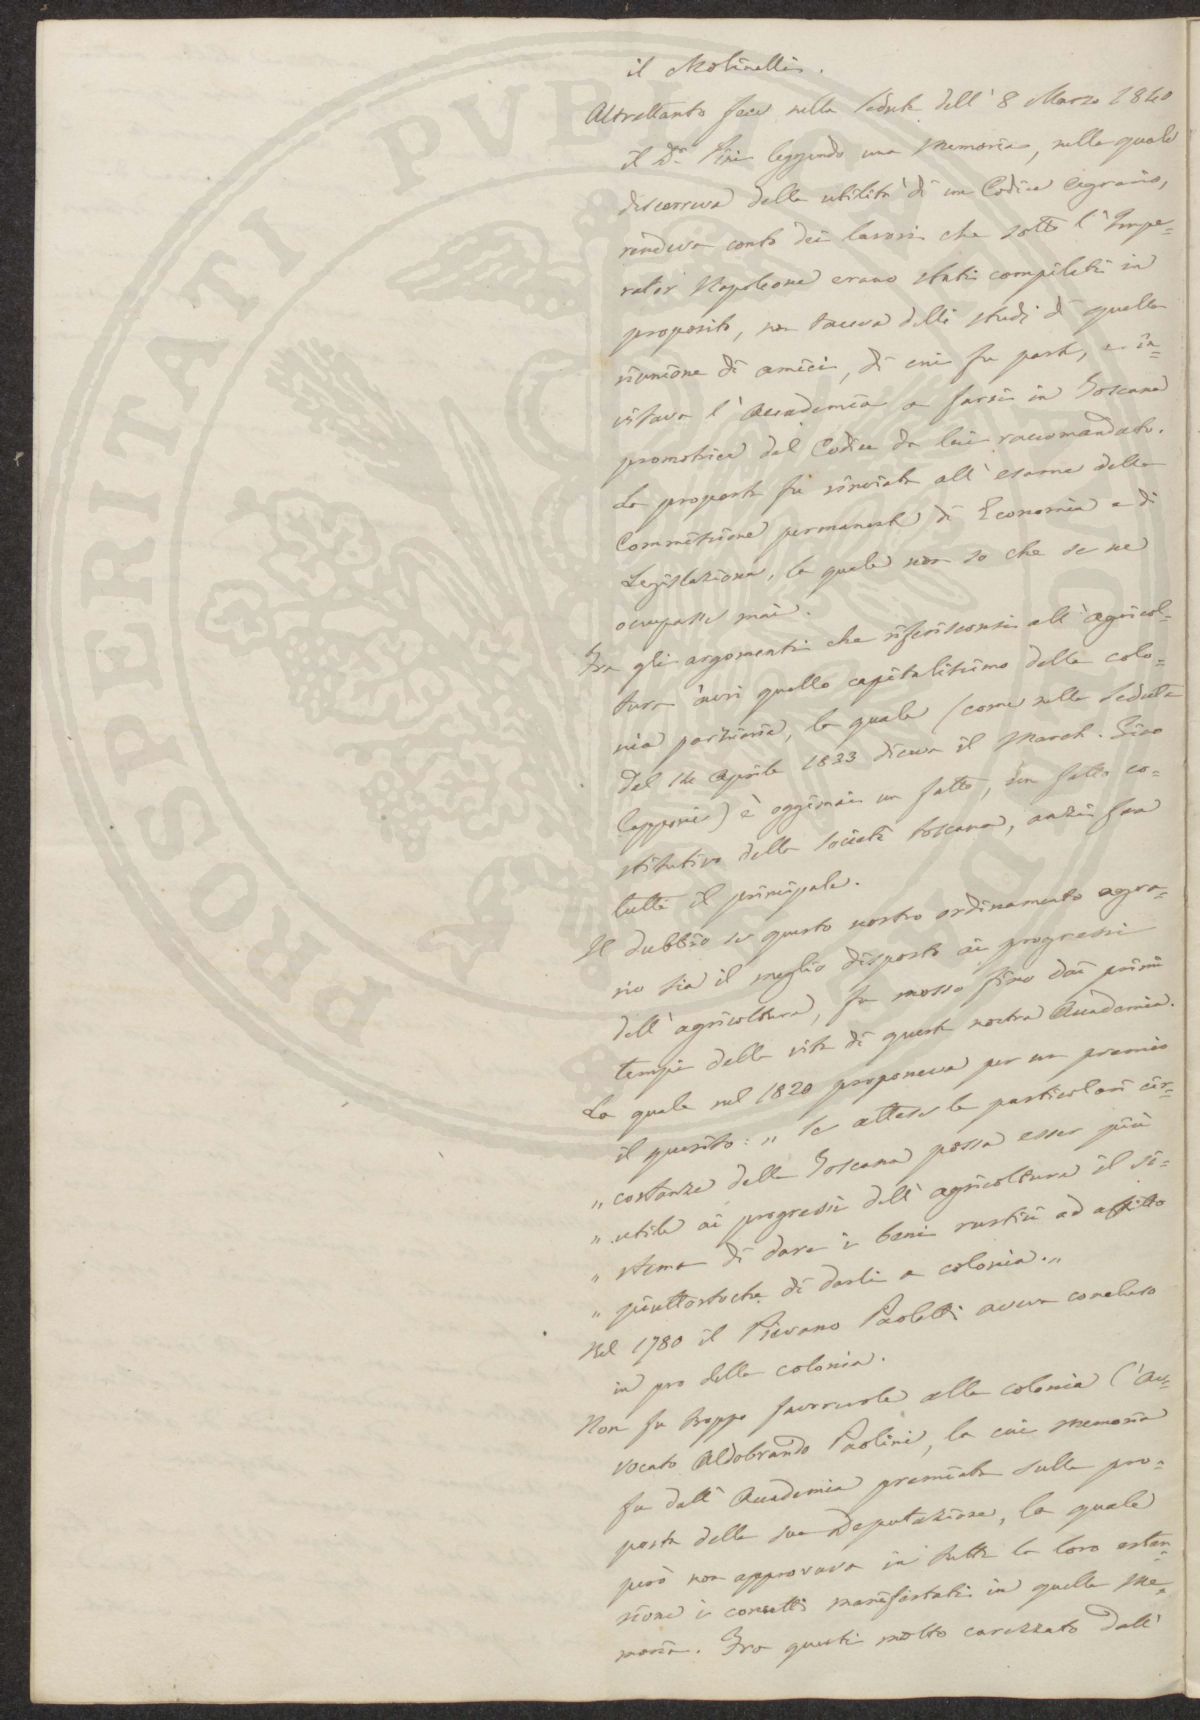 il Molinelli.
Altrettanto fece nella seduta dell' 8 Marzo 1840
il Dr. leggendo una Memoria, nella quale
discorreva della utilità di un Codice Agrario,
rendeva conto dei lavori che sotto l'Impe=
rator Napoleone erano stati compilati in
proposito, non taceva delli studi di quella
riunione di amici, di cui fu parte, e in=
vitava l'Accademia a farsi in Toscana
promotrice del Codice da lui raccomandato.
La proposta fu rinviata all' esame della
Commissione permanente di Economia e di
Legislazione, la quale non so che se ne
occupasse mai.
Fra gli argomenti che riferisconsi all' agricol=
tura èvvi quello capitalissimo della colo=
nia parziaria, la quale (come nella seduta
del 14 Aprile 1833 diceva il March. Gino
Capponi) è oggimai un fatto, un fatto co=
stitutivo della società toscana, anzi fra
tutti il principale.
Il dubbio se questo nostro ordinamento agra=
rio sia il meglio disposto ai progressi
dell' agricoltura, fu mosso fino dai primi
tempi della vita di questa nostra Accademia.
La quale nel 1820 proponeva per un premio
il quesito: „ Se attese le particolari cir=
„ costanze della Toscana possa esser più
„ utile ai progressi dell' agricoltura il si=
„ stema di dare i beni rustici ad affitto
„ piuttostoche di darli a colonia. „
Nel 1780 il Pievano Paoletti aveva concluso
in pro della colonia.
Non fu troppo favorevole alla colonia l'Av=
vocato Aldobrando Paolini, la cui memoria
fu dall' Accademia premiata sulla pro=
posta della sua Deputazione, la quale
però non approvava in tutta la loro esten
sione i concetti manifestati in quella Me=
moria. Fra questi molto carezzato dall'
PROSPERITATI PVBLICAE AVGENDAE